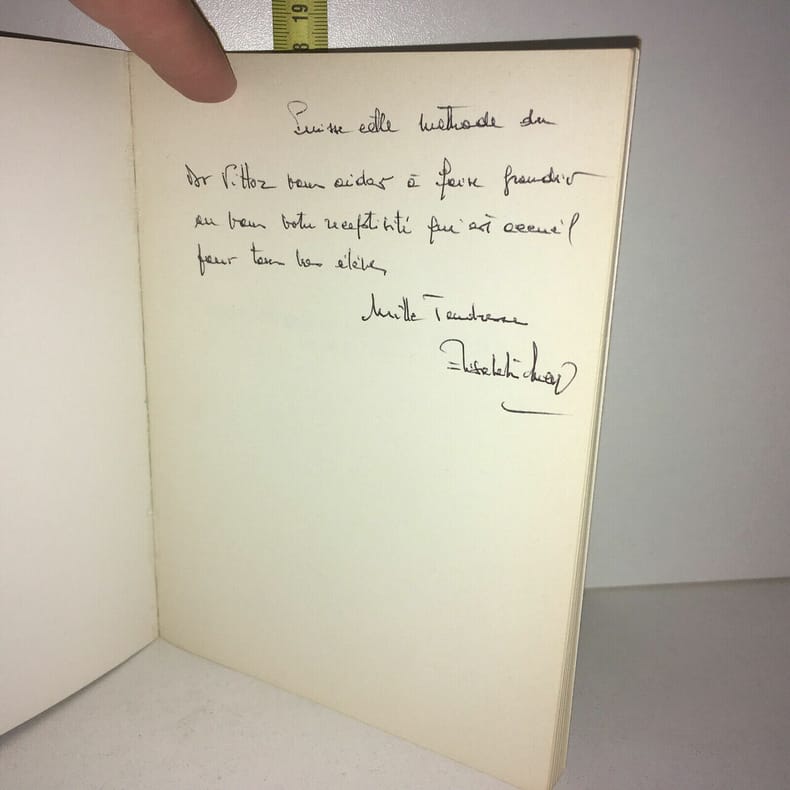 19
Puisse cette méthode du
Dr Vittoz vous aider à faire grandir
en vous votre receptivité qui est accueil
pour tous vos élèves
Mille Tendresses
Elisabeth